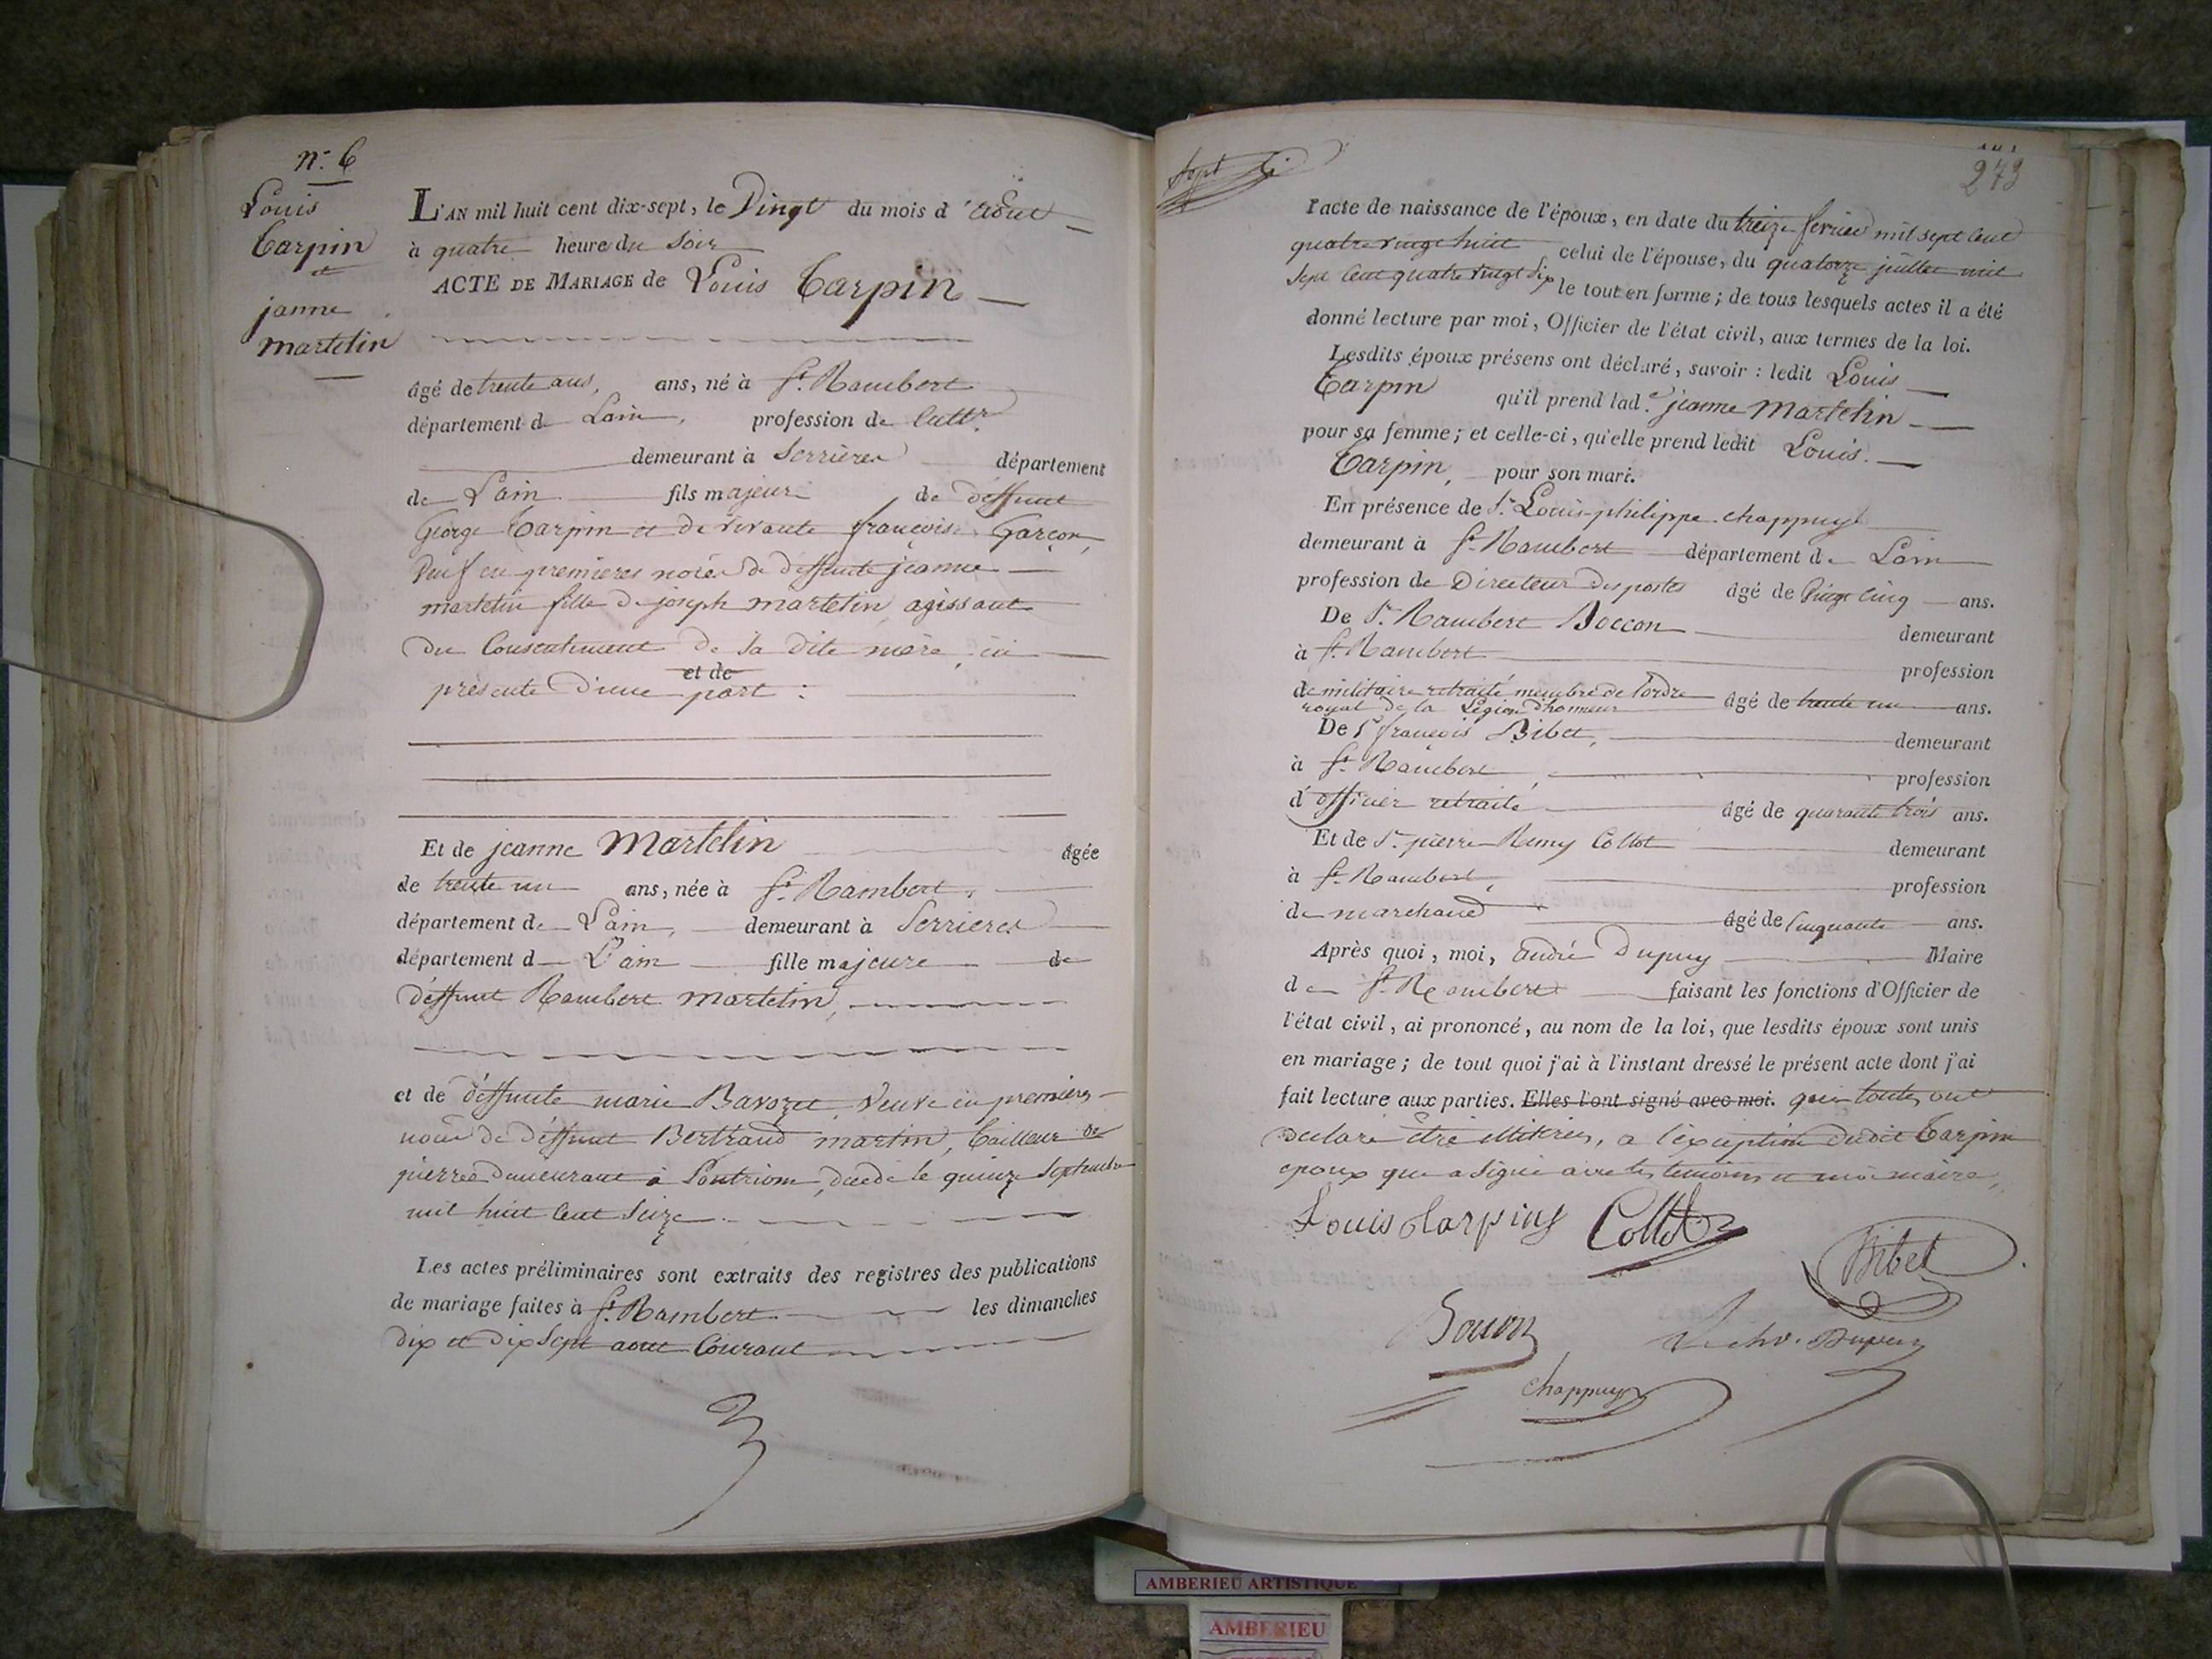 n.° 6
Louis
Tarpin
et
janne
martelin
L'AN mil huit cent dix-sept, le Vingt du mois d'Aout
à quatre heure du Soir
ACTE DE MARIAGE de Louis Tarpin
âgé de trente ans, ans, né à St. Rambert
département de Lain, profession de Cultr.
demeurant à Serrières département
de Lain fils majeur de deffunt
George Tarpin et de vivante françoise Garçon,
Veuf en premieres noces de deffunte jeanne
martelin fille de joseph martelin, agissant
du Consentement de sa dite mère ici
et de
présente d'une part :
Et de jeanne Martelin âgée
de trente un ans, née à St. Rambert,
département de Lain, demeurant à Serrieres
département d Lain fille majeure de
deffunt Rambert martelin,
et de deffunte marie Bavozet, Veuve en premieres
noces de deffunt Bertrand martin, Tailleur de
pierres demeurant à Pontriom, décédé le quinze Septembre
mil huit Cent Seize
Les actes préliminaires sont extraits des registres des publications
de mariage faites à St. Rambert les dimanches
dix et dix Sept aout Courant
273
l'acte de naissance de l'époux, en date du treize fevrier mil sept Cent
quatre vingt huit celui de l'épouse, du quatorze juillet mil
Sept Cent quatre vingt six le tout en forme ; de tous lesquels actes il a été
donné lecture par moi, Officier de l'état civil, aux termes de la loi.
Lesdits époux présens ont déclaré, savoir : ledit Louis
Tarpin qu'il prend lad.e jeanne Martelin
pour sa femme ; et celle-ci, qu'elle prend ledit Louis
Tarpin, pour son mari.
En présence de Sr. Louis philippe chappuy
demeurant à St. Rambert département de Lain
profession de Directeur des postes âgé de Vingt Cinq ans.
De Sr. Rambert Boccon demeurant
à St. Rambert profession
de militaire retraité membre de lordre
royal de la Légion d'honneur âgé de trente un ans.
De Sr françois Bibet, demeurant
à St. Rambert profession
d'officier retraité âgé de quarante trois ans.
Et de Sr. pierre Remy Collot demeurant
à St. Rambert, profession
de marchand âgé de Cinquante ans.
Après quoi, moi, andré Dupuy Maire
de St. Rambert faisant les fonctions d'Officier de
l'état civil, ai prononcé, au nom de la loi, que lesdits époux sont unis
en mariage ; de tout quoi j'ai à l'instant dressé le présent acte dont j'ai
fait lecture aux parties. Elles l'ont signé avec moi. qui toutes ont
declaré être illitérées, a l'exception dudit Tarpin
epoux qui a Signé avec les temoins et moi maire,
Louis Tarpin Collot
Bibet
Boccon Dupuy
chappuy
AMBERIEU ARTISTIQUE
AMBERIEU